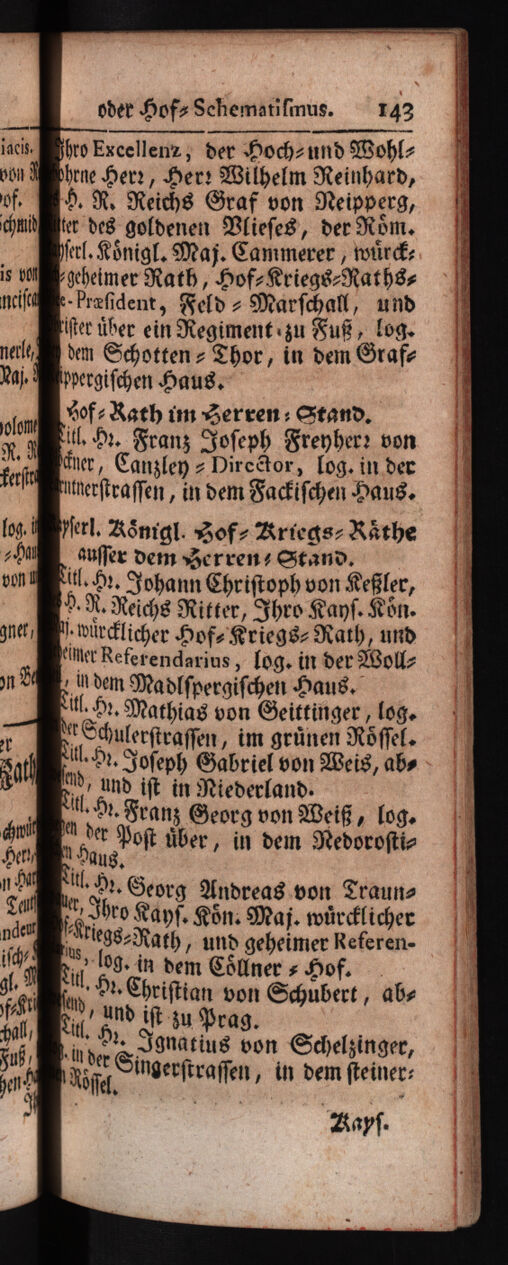 oder Hof-Schematismus. 143
Ihro Excellenz, der Hoch-und Wohl-
Herr, Herr Wilhelm Reinhard,
H. R. Reichs Graf von Neipperg,
des goldenen Vlieses, der Röm.
Königl. Maj. Cammerer, würck-
geheimer Rath, Hof-Kriegs-Raths-
Præsident, Feld-Marschall, und
über ein Regiment zu Fuß, log.
dem Schotten-Thor, in dem Graf-
Haus.
Hof-Rath im Herren-Stand.
Titl. Hr. Franz Joseph Freyherr von
Canzley-Director, log. in der
in dem Fackischen Haus.
Königl. Hof-Kriegs-Räthe
ausser dem Herren-Stand.
Titl. Hr. Johann Christoph von Keßler,
H. R. Reichs Ritter, Ihro Kays. Kön.
würcklicher Hof-Kriegs-Rath, und
Referendarius, log. in der Woll-
in dem Madlspergischen Haus.
Titl. Hr. Mathias von Geittinger, log.
der Schulerstrassen, im grünen Rössel.
Titl. Hr. Joseph Gabriel von Weis, ab-
und ist in Niederland.
Titl. Hr. Franz Georg von Weiß, log.
der Post über, in dem Nedorosti-
Haus.
Titl. Hr. Georg Andreas von Traun-
Ihro Kays. Kön. Maj. würcklicher
Kriegs-Rath, und geheimer Referen-
log. in dem Cöllner-Hof.
Titl. Hr. Christian von Schubert, ab-
und ist zu Prag.
Titl. Hr. Ignatius von Schelzinger,
in der Singerstrassen, in dem steiner-
Rössel.
Kays.